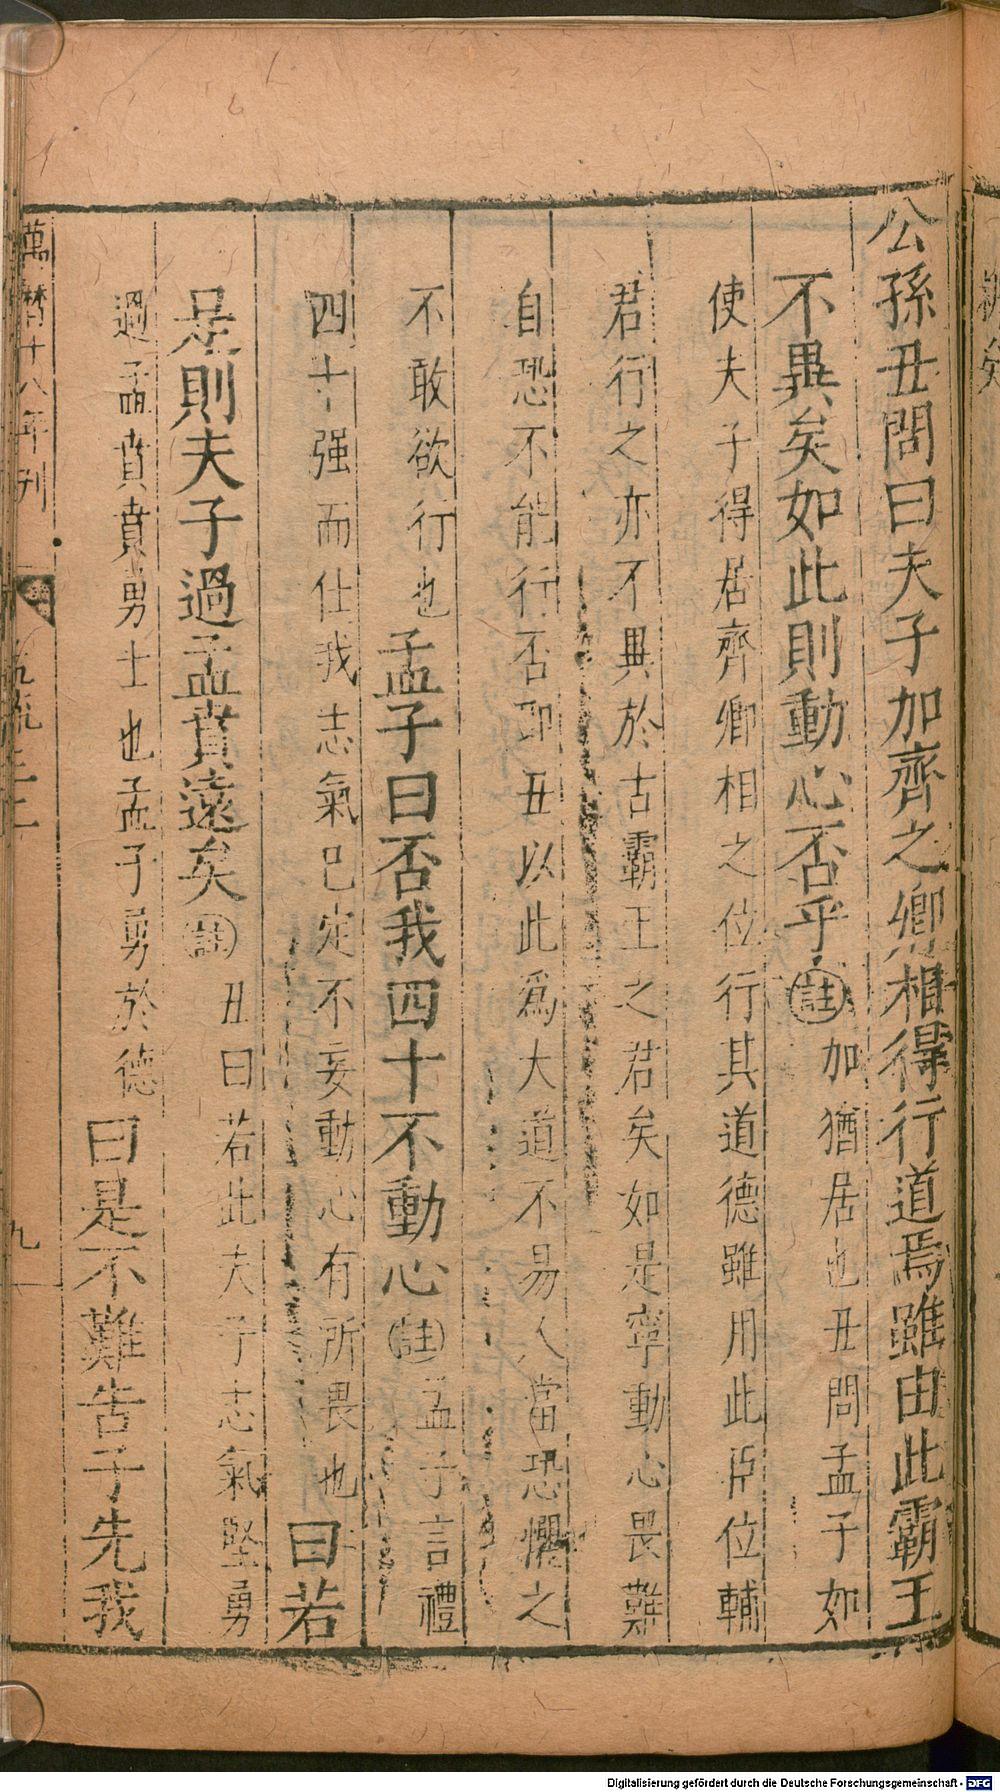 公孫丑問曰夫子加齊之卿相得行道焉雖由此霸王
不異矣如此則動心否乎註加猶居也丑問孟子如
使夫子得居齊卿相之位行其道德雖用此臣位輔
君行之亦不異於古霸王之君矣如是寧動心畏難
自恐不能行否卽丑以此爲大道不易人當恐懼之
不敢欲行也孟子曰否我四十不動心註孟子言禮
四十强而仕我志氣已定不妄動心有所畏也曰若
是則夫子過孟賁遠矣註丑曰若此夫子志氣堅勇
過孟賁賁勇士也孟子勇於德曰是不難告子先我
萬曆十八年刋
九
Digitalisierung gefördert durch die Deutsche Forschungsgemeinschaft - DFG